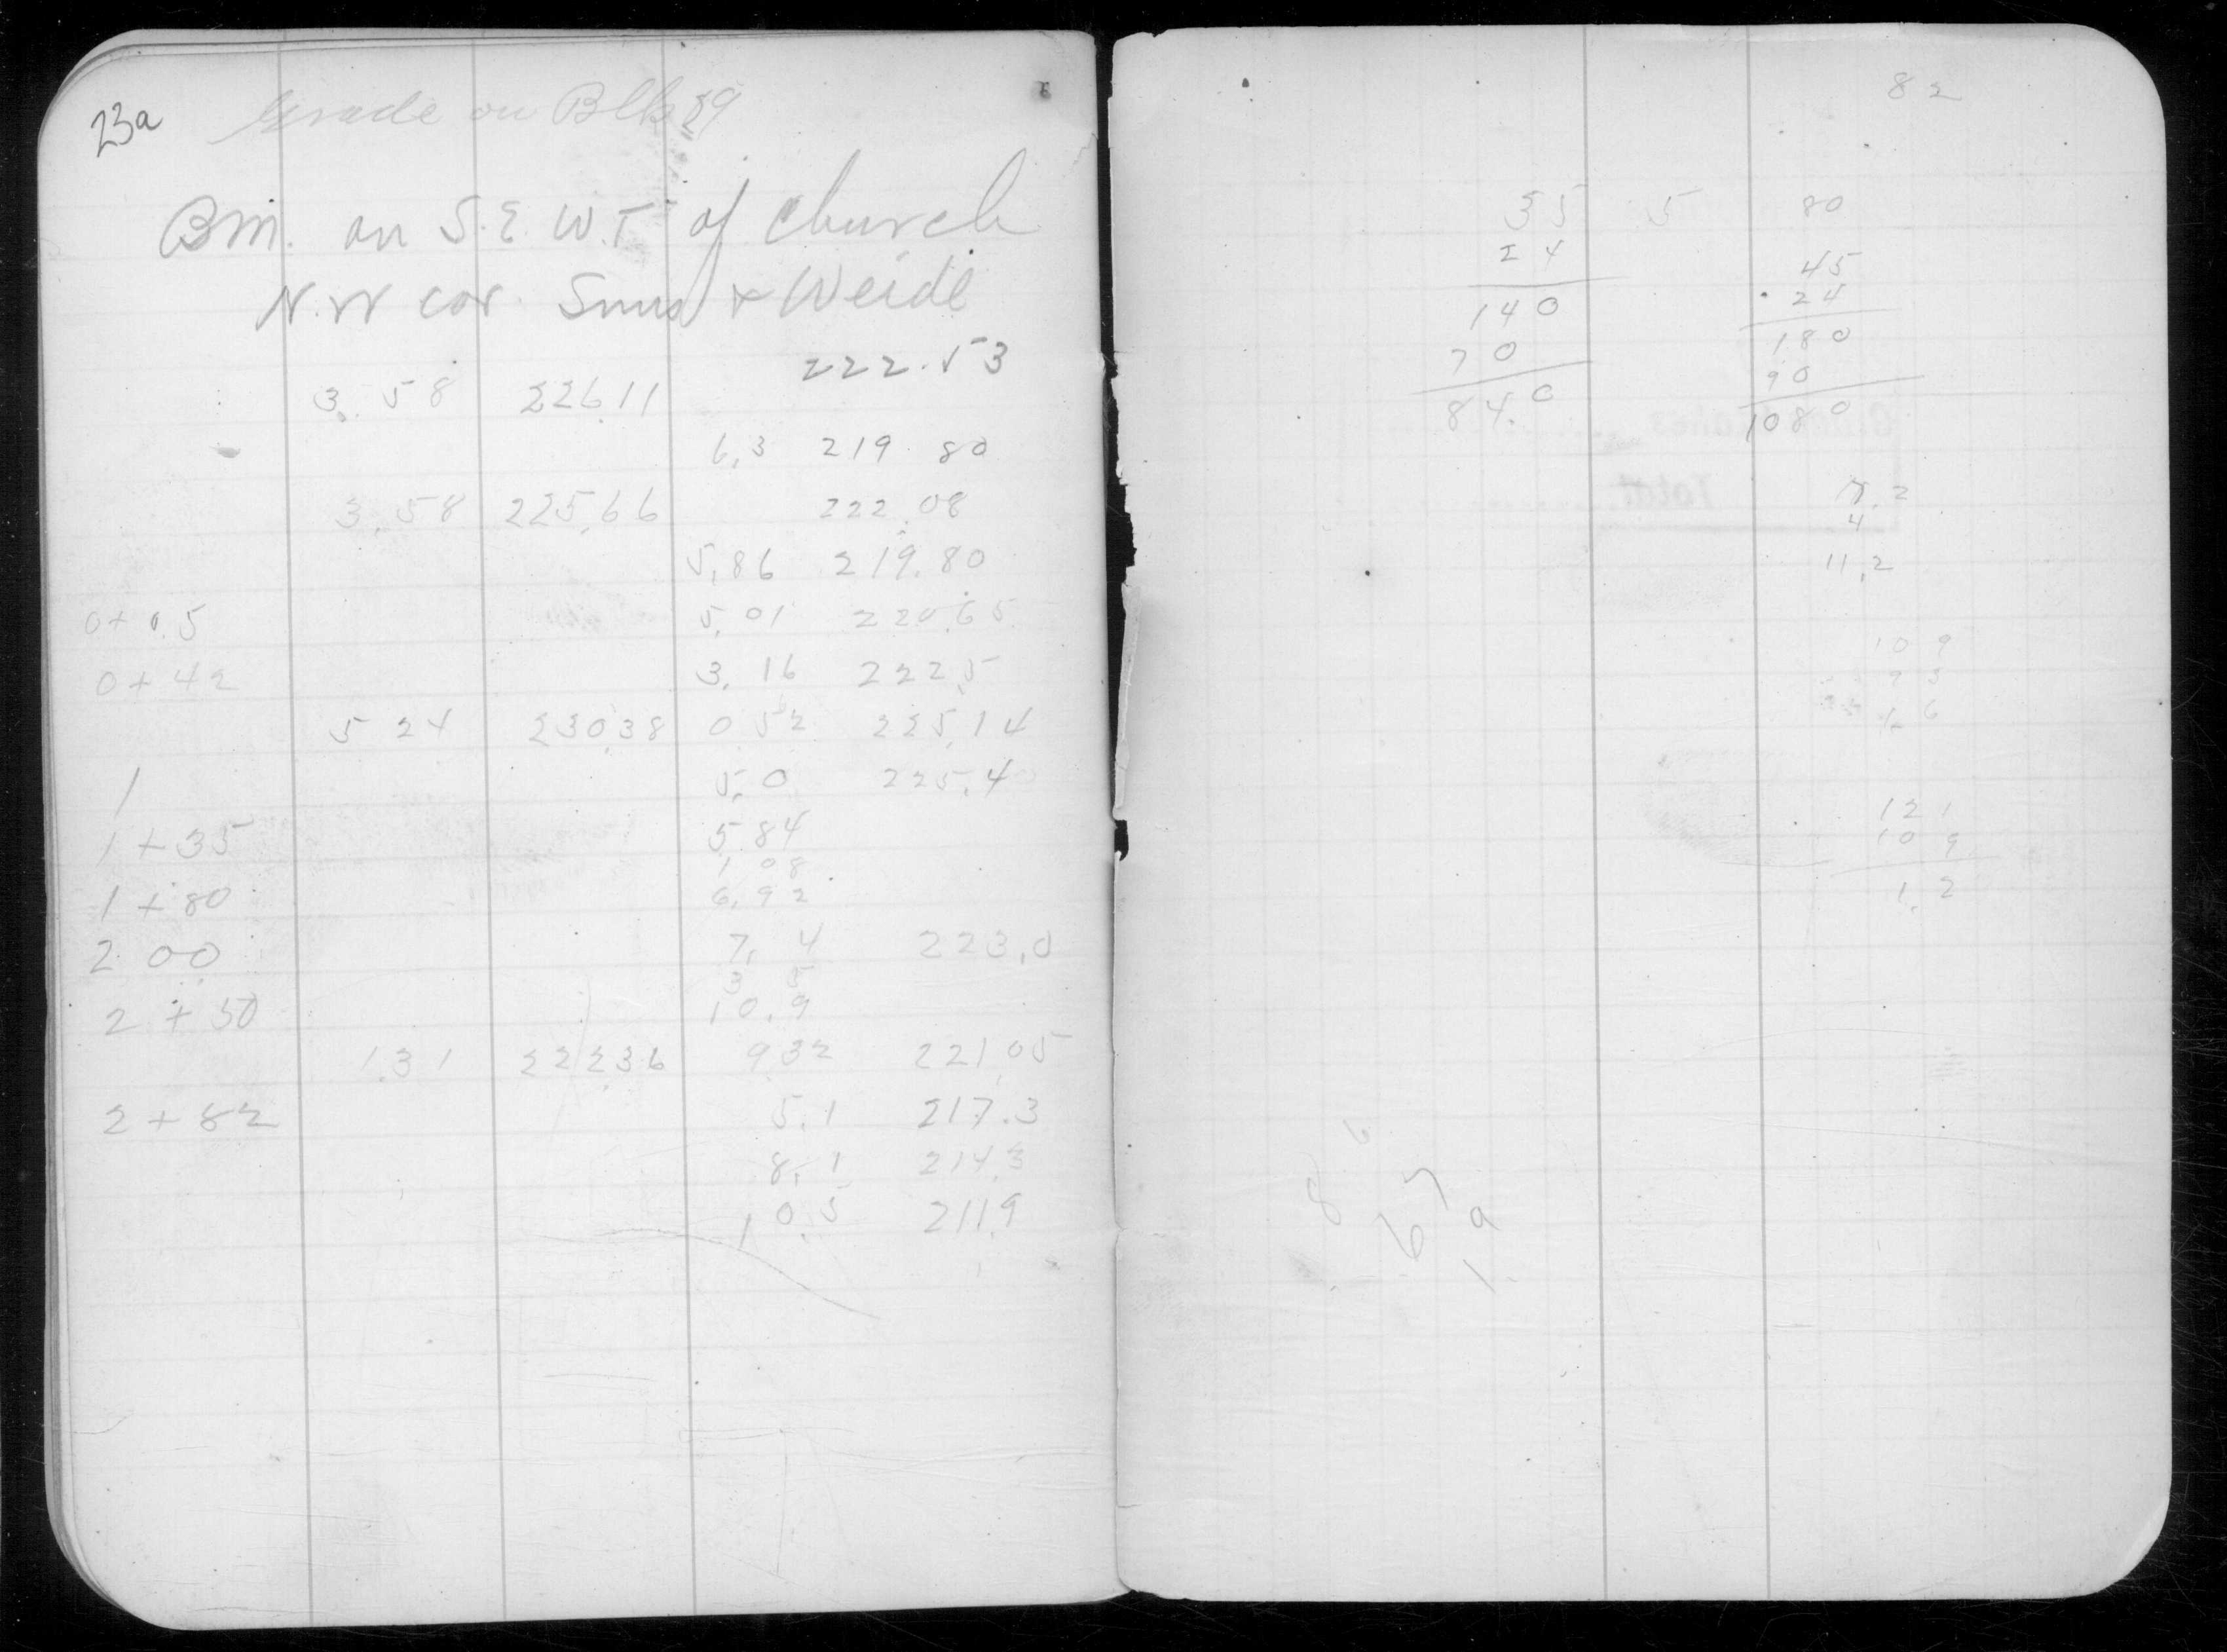 23a Grade on Blk 89
Bm. on S.E. W.T. of Church
N.W cor. Sims & Weide
222.53
3.58 226.11
6.3 219.80
3.58 225.66 222.08
5.86 219.80
0+0.5 5.01 220.65
0+42 3.16 222.5
5 24 230.38 0.52 225.14
1 5.0 225.4
1+35 5.84
1 08
1+80 6.92
2 00 7.4 223.0
3 5
2+50 10.9
1.31 222.36 9.32 221.05
2+82 5.1 217.3
8.1 214.3
10.5 211.9
82
35 5 80
24 45
140 24
70 180
84.0 90
1080
7.2
4
11.2
10 9
7 3
12 1
10 9
1.2